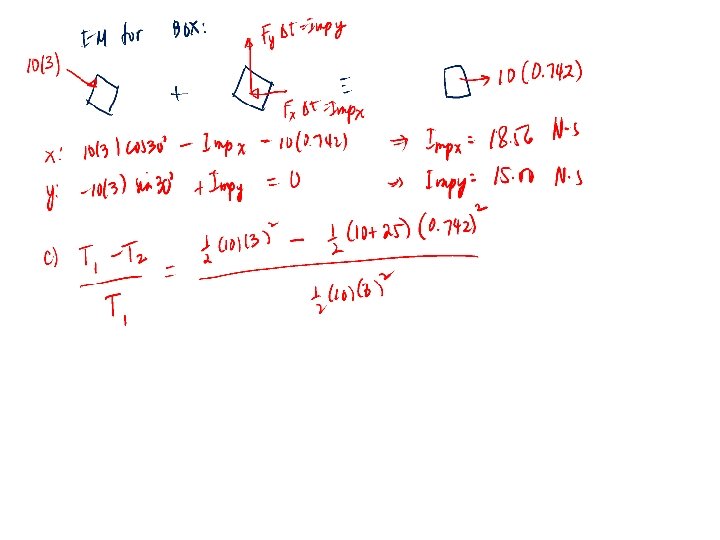 IM for BOX:
Fy Δt = Impy
10(3)
+
≡
10(0.742)
Fx Δt = Impx
x: 10(3) cos30° - Impx - 10(0.742) ⇒ Impx = 18.56 N·s
y: -10(3) sin 30° + Impy = 0 ⇒ Impy = 15.00 N·s
c) T₁ - T₂ / T₁ = ½(10)(3)² - ½(10+25)(0.742)² / ½(10)(3)²